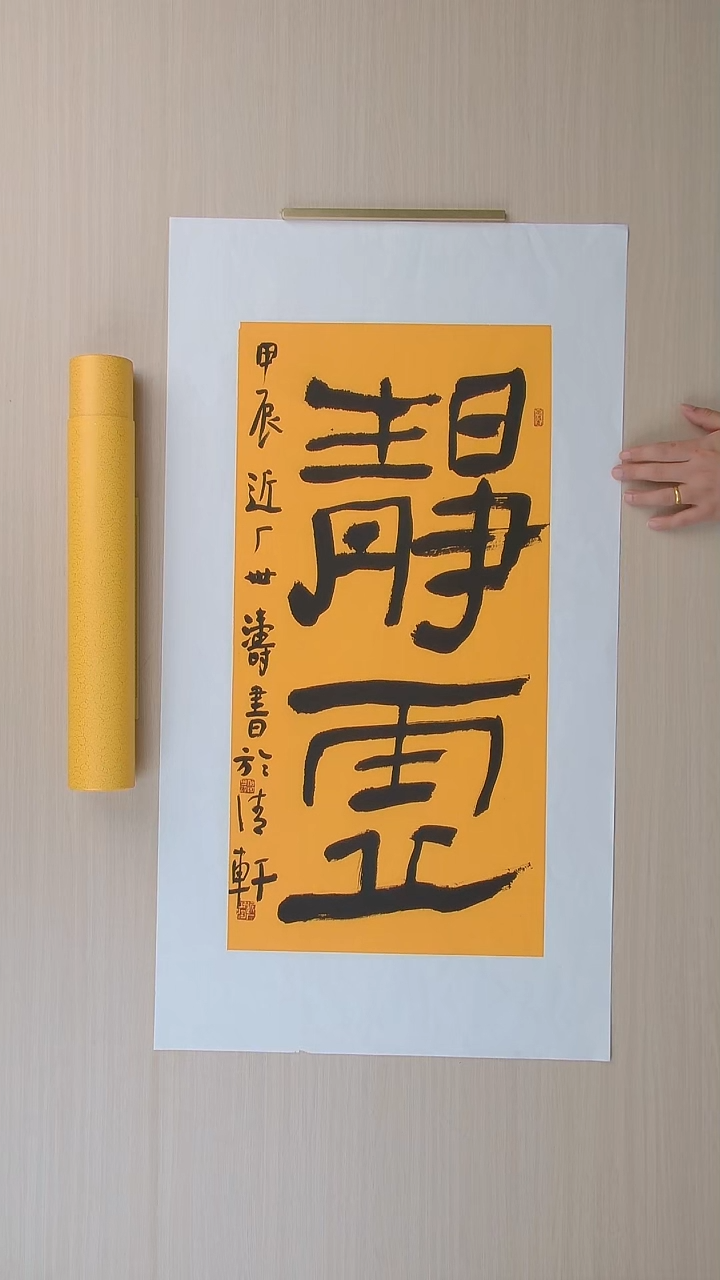 靜虛
甲辰近厂世濤書於清軒